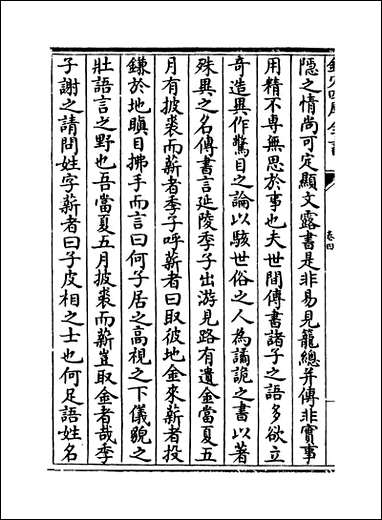 欽定四庫全書
卷四
隱之情尚可定顯文露書是非易見籠總并傳非實事
用精不專無思於事也夫世間傳書諸子之語多欲立
奇造異作驚目之論以駭世俗之人為譎詭之書以著
殊異之名傳書言延陵季子出游見路有遺金當夏五
月有披裘而薪者季子呼薪者曰取彼地金來薪者投
鎌於地瞋目拂手而言曰何子居之高視之下儀貌之
壯語言之野也吾當夏五月披裘而薪豈取金者哉季
子謝之請問姓字薪者曰子皮相之士也何足語姓名